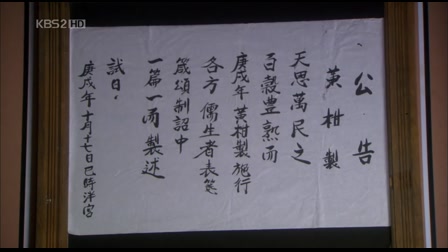 KBS2HD
公告
黃柑製
天恩萬民之
百穀豊熟而
庚戌年黃柑製施行
各方儒生者表箋
箴頌制詔中
一篇一而製述
試日.
庚戌年十月十七日巳時泮宮